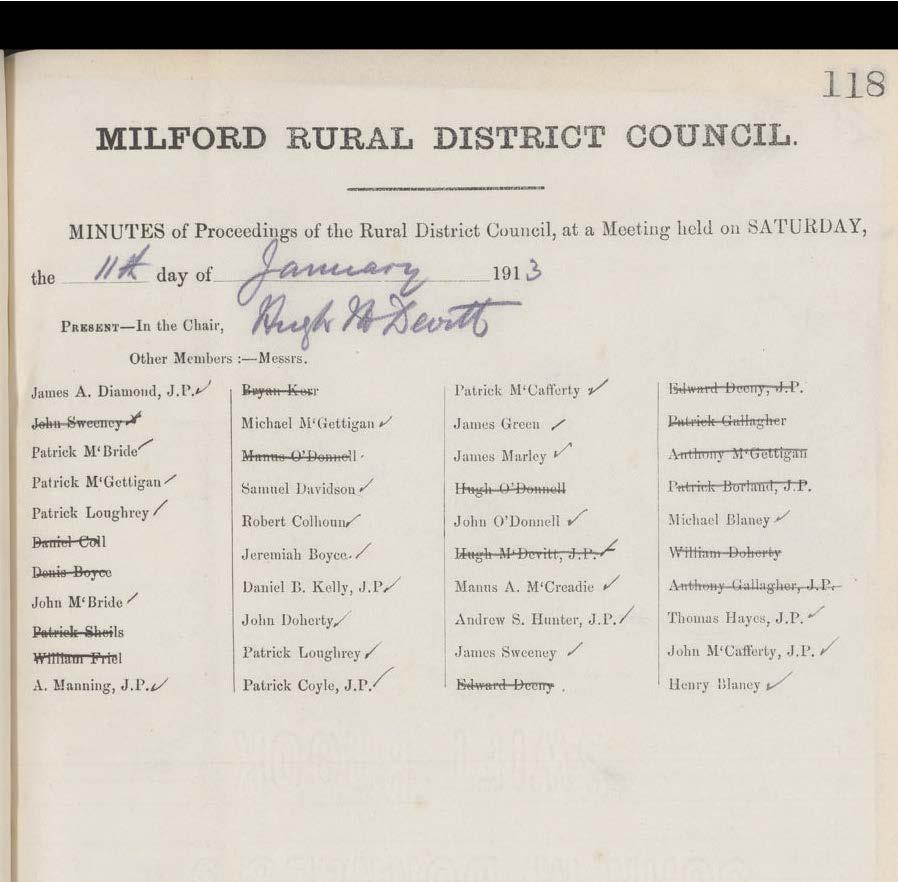 118
MILFORD RURAL DISTRICT COUNCIL.
MINUTES of Proceedings of the Rural District Council, at a Meeting held on SATURDAY,
the 11th day of January 1913
PRESENT—In the Chair, Hugh McDevitt
Other Members :—Messrs.
James A. Diamond, J.P.
John Sweeney
Patrick M‘Bride
Patrick M‘Gettigan
Patrick Loughrey
Daniel Coll
Denis Boyce
John M‘Bride
Patrick Sheils
William Friel
A. Manning, J.P.
Bryan Kerr
Michael M‘Gettigan
Manus O‘Donnell
Samuel Davidson
Robert Colhoun
Jeremiah Boyce
Daniel B. Kelly, J.P.
John Doherty
Patrick Loughrey
Patrick Coyle, J.P.
Patrick M‘Cafferty
James Green
James Marley
Hugh O‘Donnell
John O‘Donnell
Hugh M‘Devitt, J.P.
Manus A. M‘Creadie
Andrew S. Hunter, J.P.
James Sweeney
Edward Deeny
Edward Deeny, J.P.
Patrick Gallagher
Anthony M‘Gettigan
Patrick Borland, J.P.
Michael Blaney
William Doherty
Anthony Gallagher, J.P.
Thomas Hayes, J.P.
John M‘Cafferty, J.P.
Henry Blaney